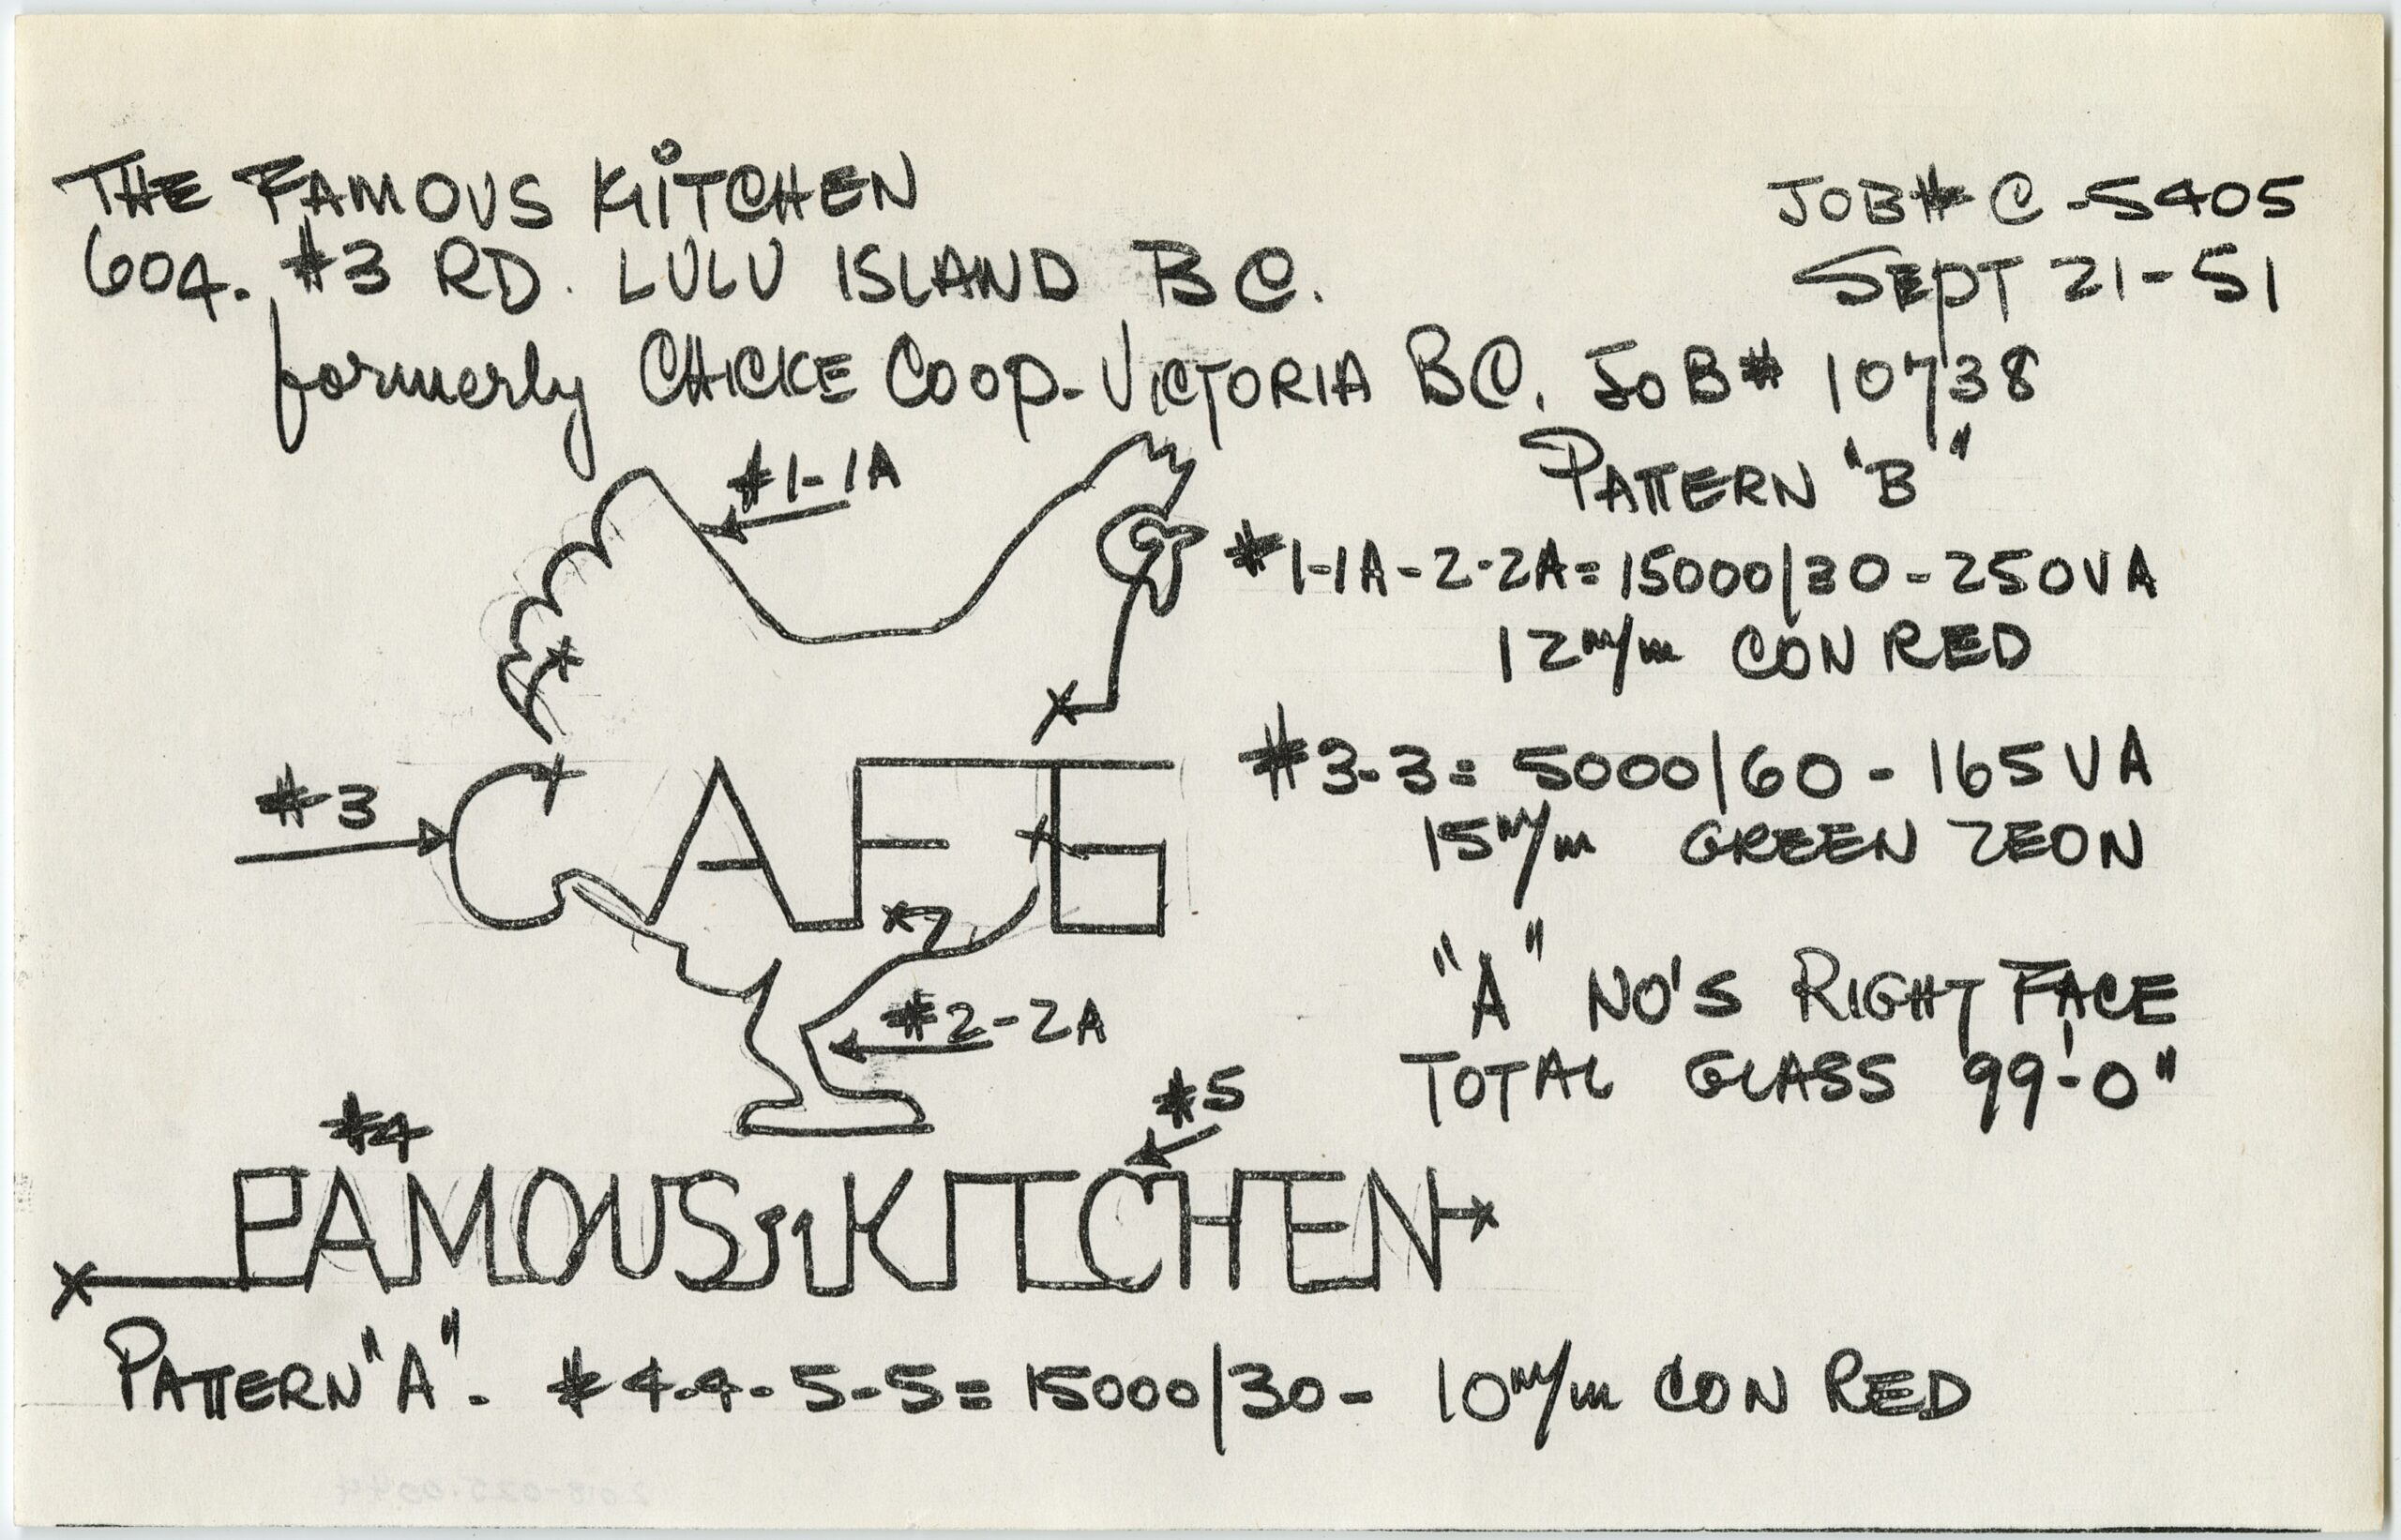 THE FAMOUS KITCHEN
JOB# C-5405
604. #3 RD. LULU ISLAND B C.
SEPT 21-51
formerly CHICKE COOP-VICTORIA BC. JOB# 10738
#1-1A
PATTERN "B"
#1-1A-2-2A=15000/30-250VA
12m/m CON RED
#3
CAFE
#3-3= 5000/60-165VA
15m/m GREEN ZEON
#2-2A
"A" NO'S RIGHT FACE
TOTAL GLASS 99'-0"
#4
#5
FAMOUS KITCHEN
PATTERN "A"- #4-4-5-5=15000/30- 10m/m CON RED